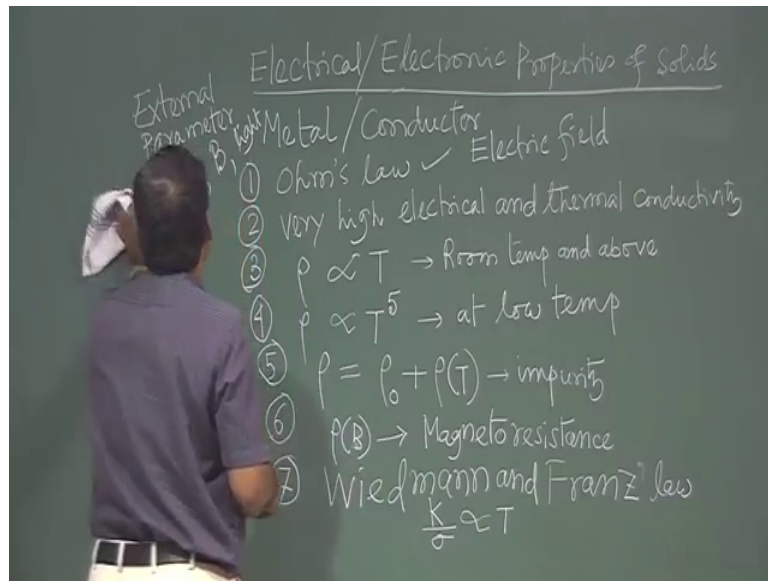 Electrical/Electronic Properties of Solids
External
Parameter
B, light
Metal/Conductor
① Ohm's law ✓ Electric field
② very high electrical and thermal conductivity
③ ρ ∝ T → Room temp and above
④ ρ ∝ T⁵ → at low temp
⑤ ρ = ρ₀ + ρ(T) → impurity
⑥ ρ(B) → Magnetoresistance
⑦ Wiedmann and Franz' law
K/σ ∝ T